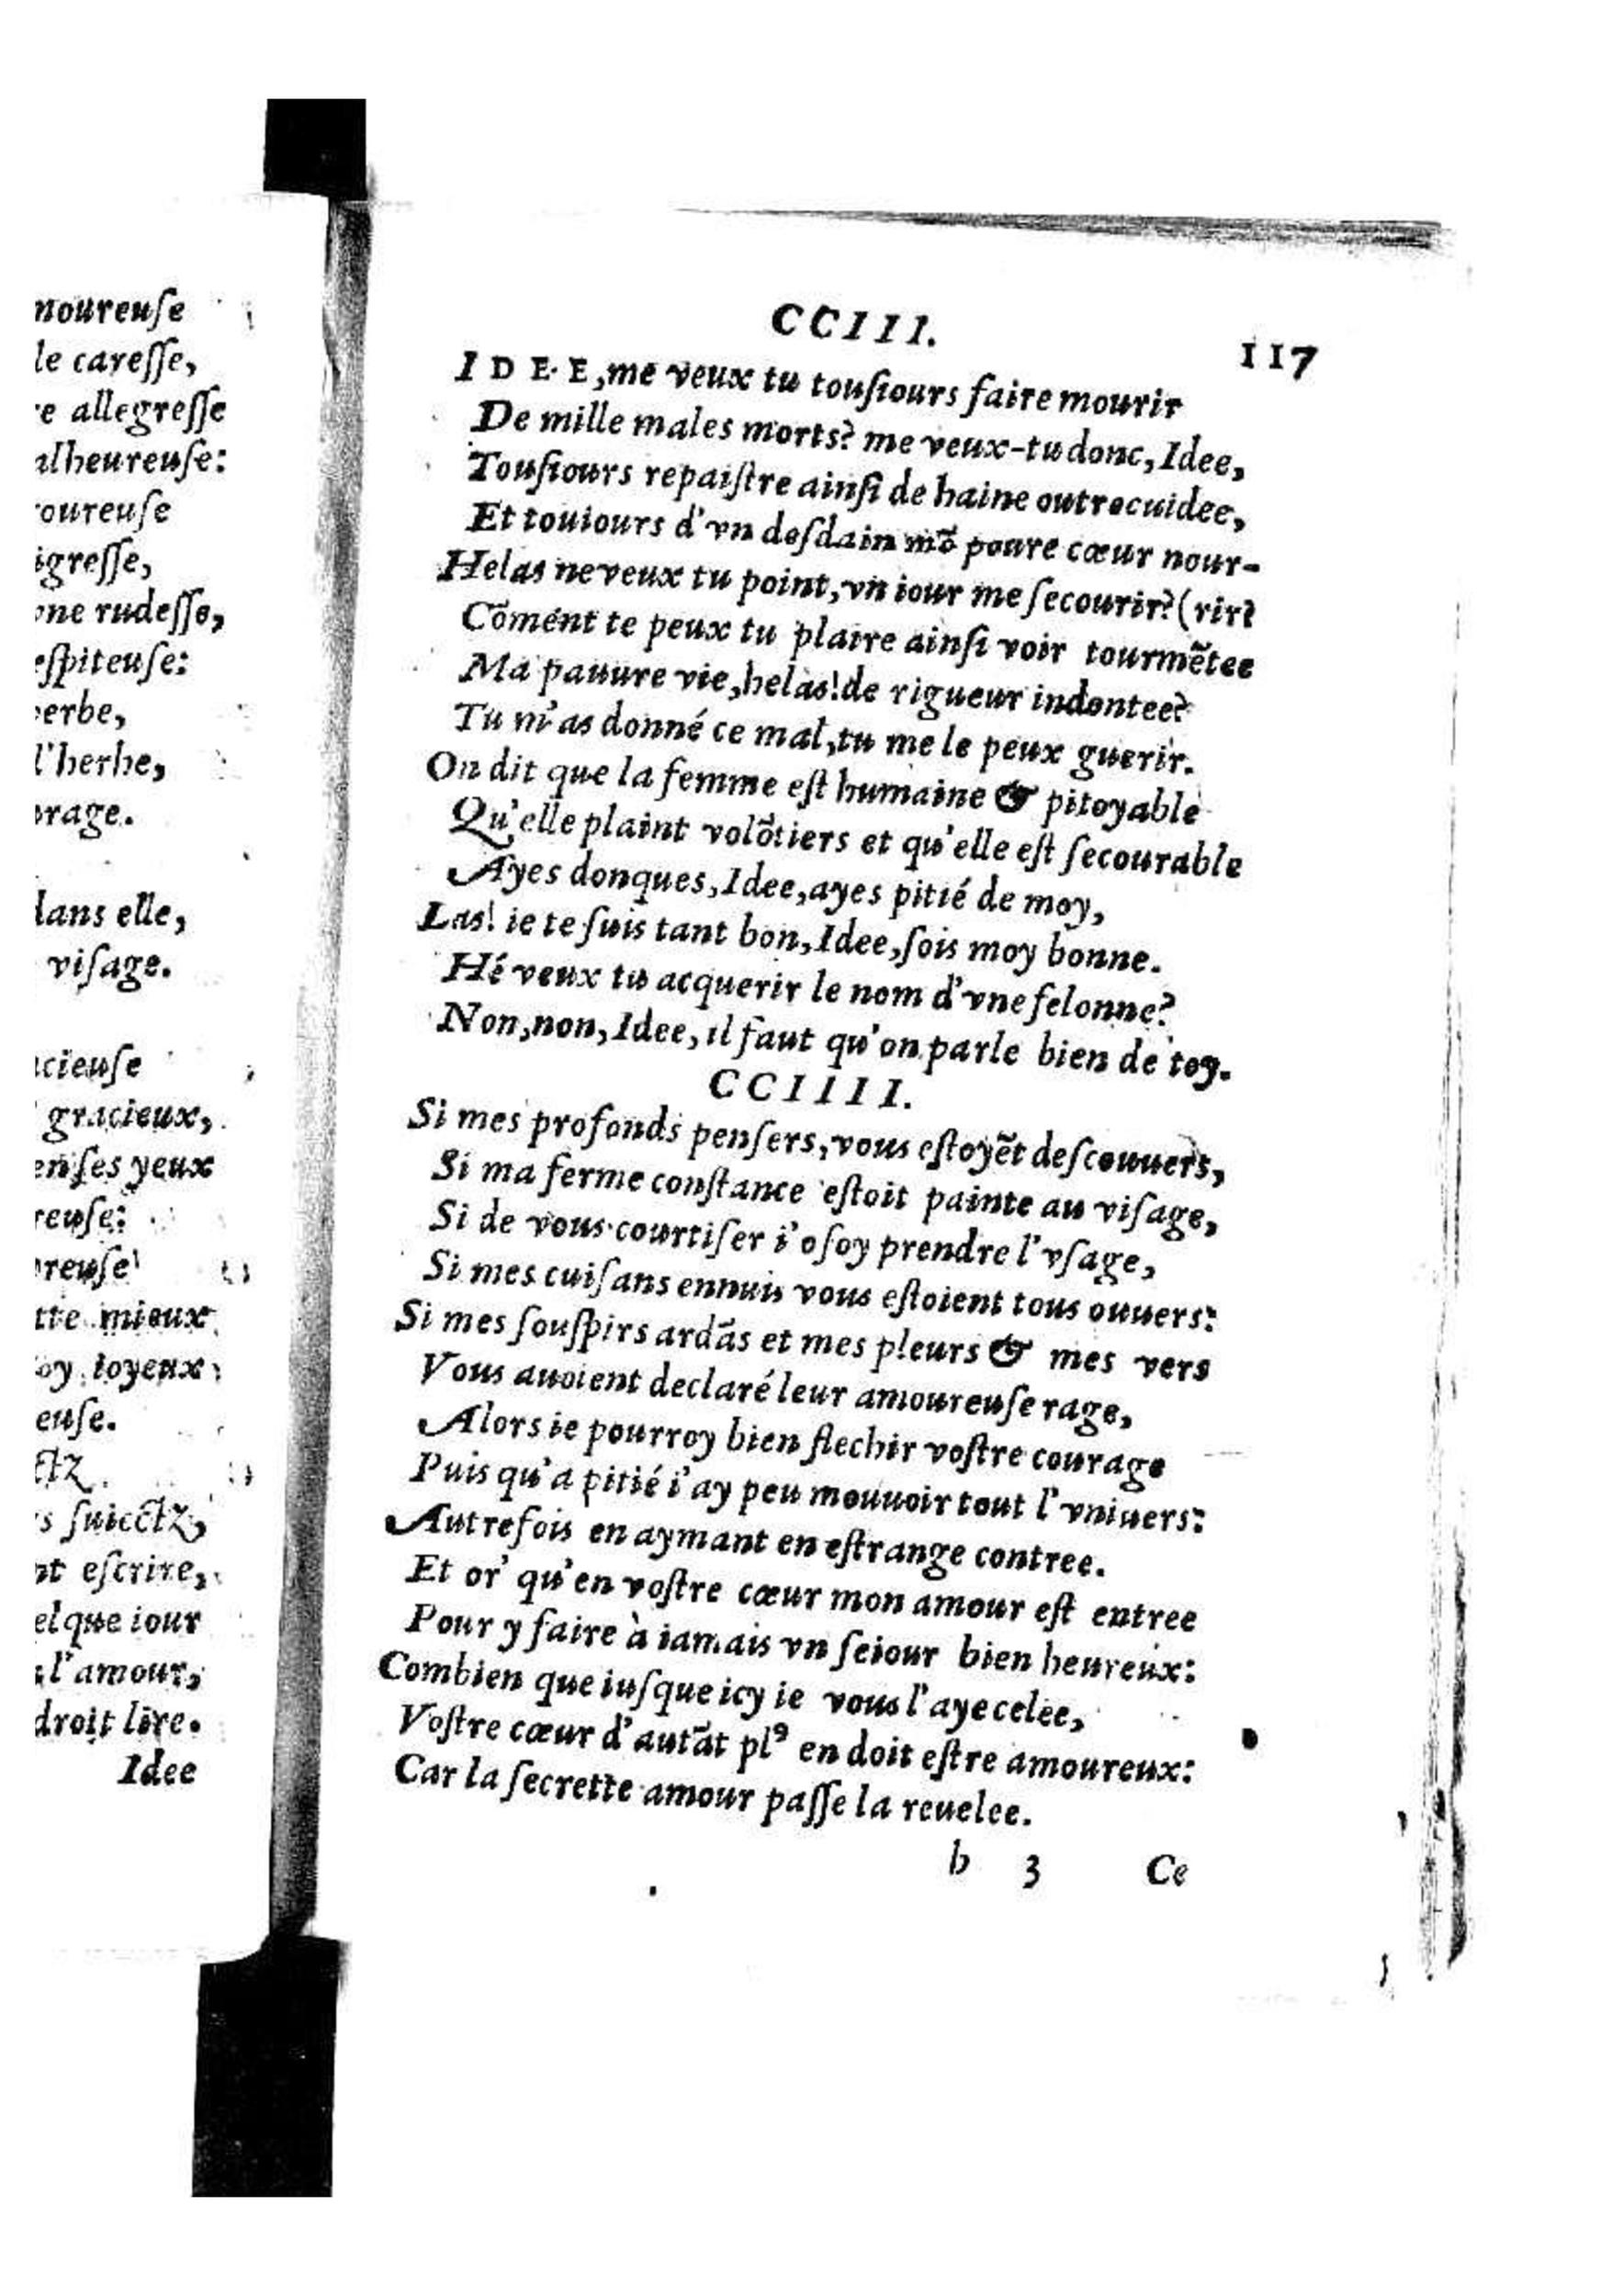 noureuſe
le careſſe,
re allegreſſe
alheureuſe:
oureuſe
igreſſe,
one rudeſſe,
eſpiteuſe:
erbe,
l'herbe,
orage.
dans elle,
viſage.
acieuſe
gracieux,
enſes yeux
reuſe:
oreuſe
tte mieux
oy ioyeux
euſe.
ctz
s ſuiectz,
nt eſcrire,
elque iour
l'amour,
droit lire.
Idee
CCIII.
117
IDEE, me veux tu touſiours faire mourir
De mille males morts? me veux-tu donc, Idee,
Touſiours repaiſtre ainſi de haine outrecuidee,
Et touiours d'vn deſdain mõ poure cœur nour-
Helas ne veux tu point, vn iour me ſecourir? (rir?
Cõment te peux tu plaire ainſi voir tourmẽtee
Ma pauure vie, helas! de rigueur indontee?
Tu m'as donné ce mal, tu me le peux guerir.
On dit que la femme eſt humaine & pitoyable
Qu'elle plaint volõtiers et qu'elle eſt ſecourable
Ayes donques, Idee, ayes pitié de moy,
Las! ie te ſuis tant bon, Idee, ſois moy bonne.
Hé veux tu acquerir le nom d'vne felonne?
Non, non, Idee, il faut qu'on parle bien de toy.
CCIIII.
Si mes profonds penſers, vous eſtoyẽt deſcouuers,
Si ma ferme conſtance eſtoit painte au viſage,
Si de vous courtiſer i'oſoy prendre l'vſage,
Si mes cuiſans ennuis vous eſtoient tous ouuers:
Si mes ſouſpirs ardãs et mes pleurs & mes vers
Vous auoient declaré leur amoureuſe rage,
Alors ie pourroy bien flechir voſtre courage
Puis qu'a pitié i'ay peu mouuoir tout l'vniuers:
Autrefois en aymant en eſtrange contree.
Et or' qu'en voſtre cœur mon amour eſt entree
Pour y faire à iamais vn ſeiour bien heureux:
Combien que iuſque icy ie vous l'aye celee,
Voſtre cœur d'autãt plꝰ en doit eſtre amoureux:
Car la ſecrette amour paſſe la reuelee.
b 3 Ce